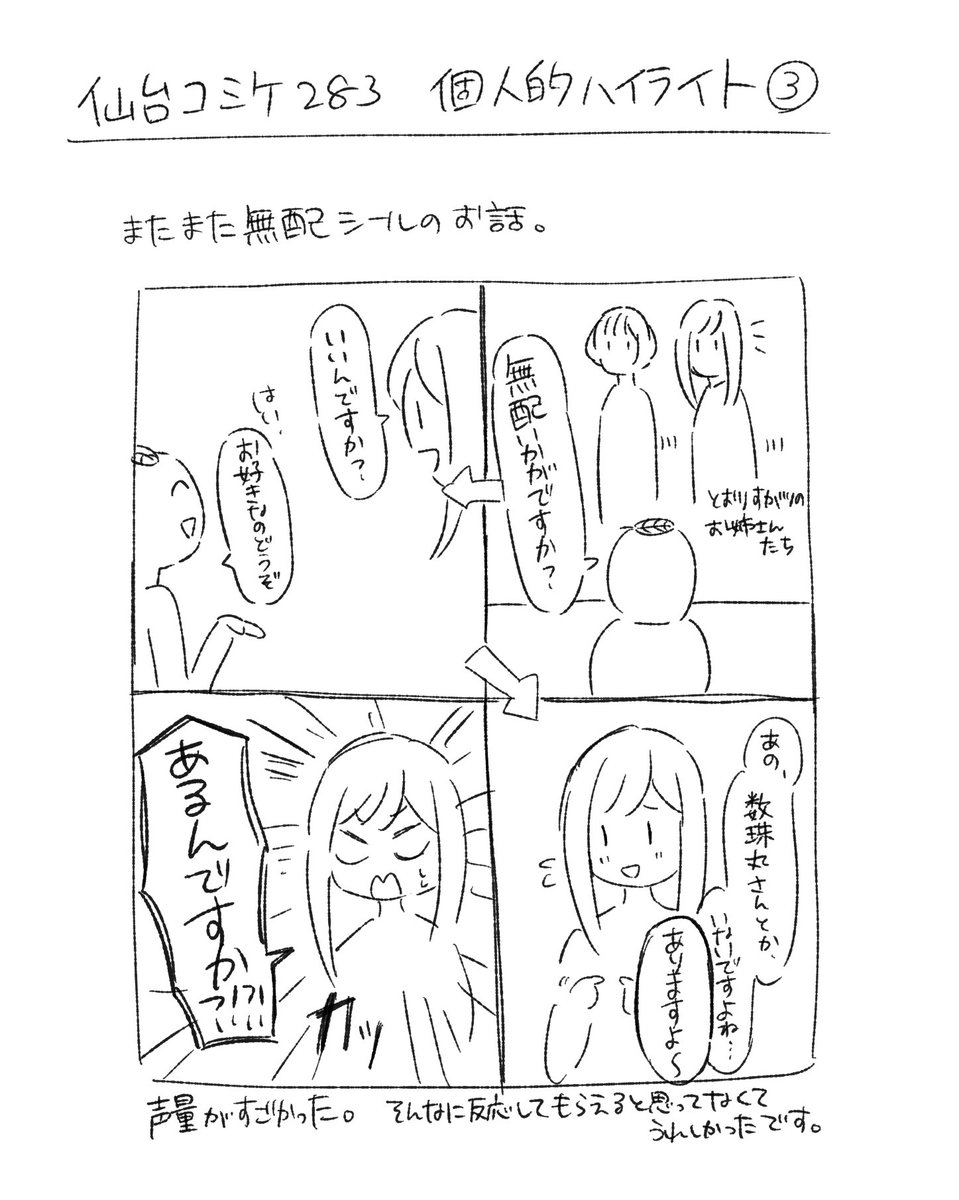 仙台コミケ283 個人的ハイライト③
またまた無配シールのお話。
無配いかがですか?
とおりすがりの
お姉さん
たち
いいんですか?
はい、
お好きなのどうぞ
あの、
数珠丸さんとか、
いないですよね…
ありますよ~
あるんですかっ!?!?
カッ
声量がすごかった。 そんなに反応してもらえると思ってなくて
うれしかったです。